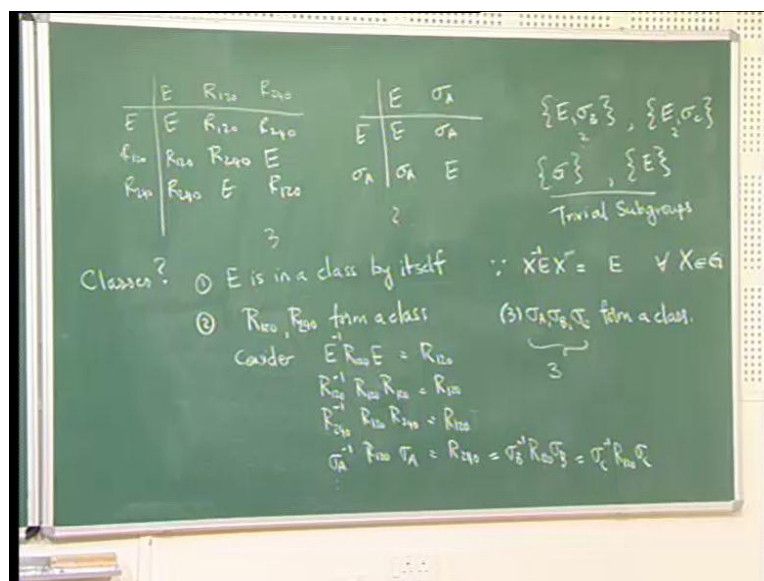 E R₁₂₀ R₂₄₀
E E R₁₂₀ R₂₄₀
R₁₂₀ R₁₂₀ R₂₄₀ E
R₂₄₀ R₂₄₀ E R₁₂₀
3
E σ_A
E E σ_A
σ_A σ_A E
2
{E, σ_B} , {E, σ_C}
2 2
{G} , {E}
Trivial Subgroups
Classes? ① E is in a class by itself ∵ X⁻¹EX = E ∀ X∈G
② R₁₂₀, R₂₄₀ form a class
(3) σ_A, σ_B, σ_C form a class.
3
Consider E⁻¹ R₁₂₀ E = R₁₂₀
R₁₂₀⁻¹ R₁₂₀ R₁₂₀ = R₁₂₀
R₂₄₀⁻¹ R₁₂₀ R₂₄₀ = R₁₂₀
σ_A⁻¹ R₁₂₀ σ_A = R₂₄₀ = σ_B⁻¹ R₁₂₀ σ_B = σ_C⁻¹ R₁₂₀ σ_C